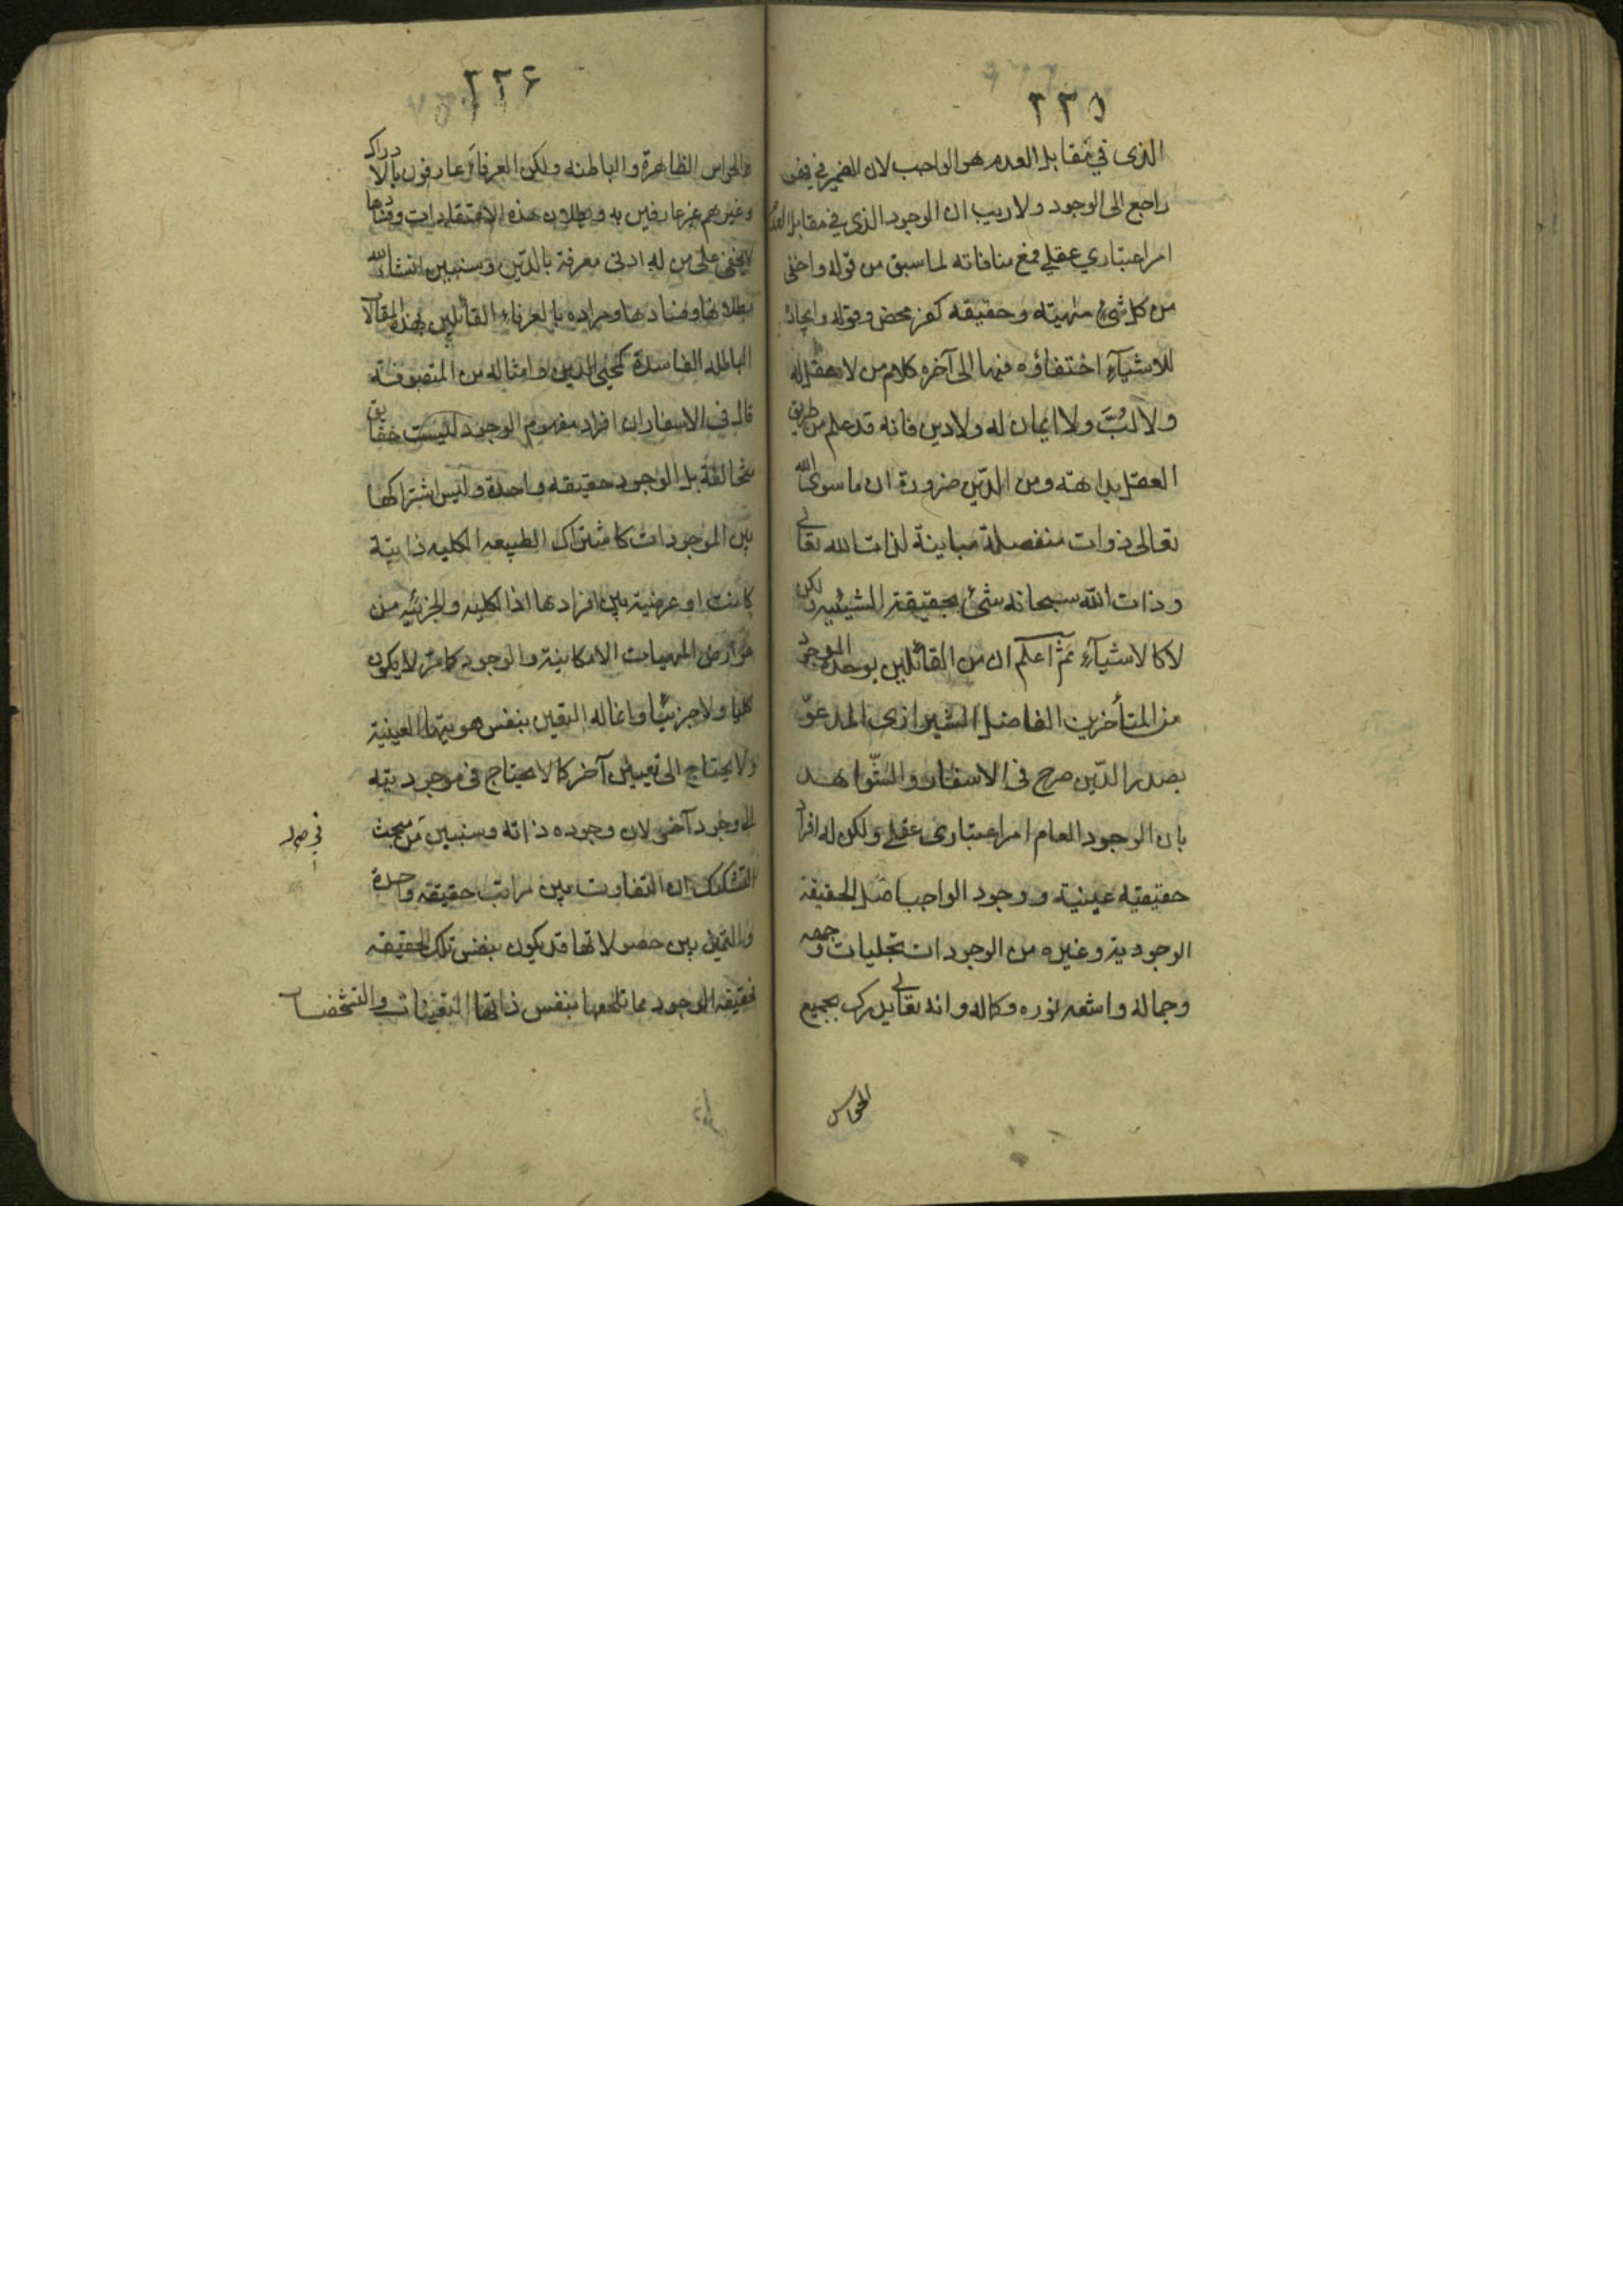 ٢٢٥
الذى في مقابل العدم هو الواجب لان الضمير في فهو
راجع الى الوجود ولا ريب ان الوجود الذى في مقابل العدم
امر اعتباري عقلي فمع منافاته لما سبق من قوله واخفى
من كل شئ مهيته وحقيقه كفر محض وقوله وايجاده
للاشيآء اختفاؤه فيها الى آخره كلام من لا عقل له
ولا لبّ ولا ايمان له ولا دين فانه قد علم من طريق
العقل بداهته ومن الدّين ضرورة ان ما سوى الله
تعالى ذوات منفصلة مباينة لذات الله تعالى
وذات الله سبحانه شئ بحقيقة الشيئيه ولكن
لا كالاشيآء ثم اعلم ان من القائلين بوحدة الوجود
من المتأخرين الفاضل الشيرازى المدعوّ
بصدر الدّين صرح فى الاسفار والشّواهد
بان الوجود العام امر اعتبارى عقلى ولكن له افراد
حقيقيه عينية ووجود الواجب اصل الحقيقة
الوجودية وغيره من الوجودات تجليات وجهه
وجماله واشعه نوره وكماله وانه تعالى يدرك بجميع
الحواس
٢٢۶
بالحواس الظاهرة والباطنه ولكن العرفآء عارفون بالادراك
وغيرهم غير عارفين به وبطلان هذه الاعتقاديات وفسادها
لا يخفى على من له ادنى معرفة بالدّين وسنبين انشاء الله
بطلانها وفسادها ومراده بالعرفاء القائلين بهذه المقالات
الباطله الفاسدة كمحيى الدين وامثاله من المتصوفة
قال في الاسفار ان افراد مفهوم الوجود ليست حقايق
متخالفة بل الوجود حقيقه واحدة وليس اشتراكها
بين الموجودات كاشتراك الطبيعه الكليه ذاتية
كانت او عرضية بين افرادها اذ الكليه والجزئيه من
عوارض المهيات الامكانية والوجود كما مر لا يكون
كليا ولا جزئيا وانما له التعين بنفس هويتها العينية
ولا يحتاج الى تعين آخر كما لا يحتاج فى موجوديته
الى وجود آخر لان وجوده ذاته وسنبين من مبحث
التشكيك ان التفاوت بين مراتب حقيقه واحدة
والتميز بين حصولاتها قد يكون بنفس تلك الحقيقه
فحقيقه الوجود مما تلحقها بنفس ذاتها التعينات والتشخصات